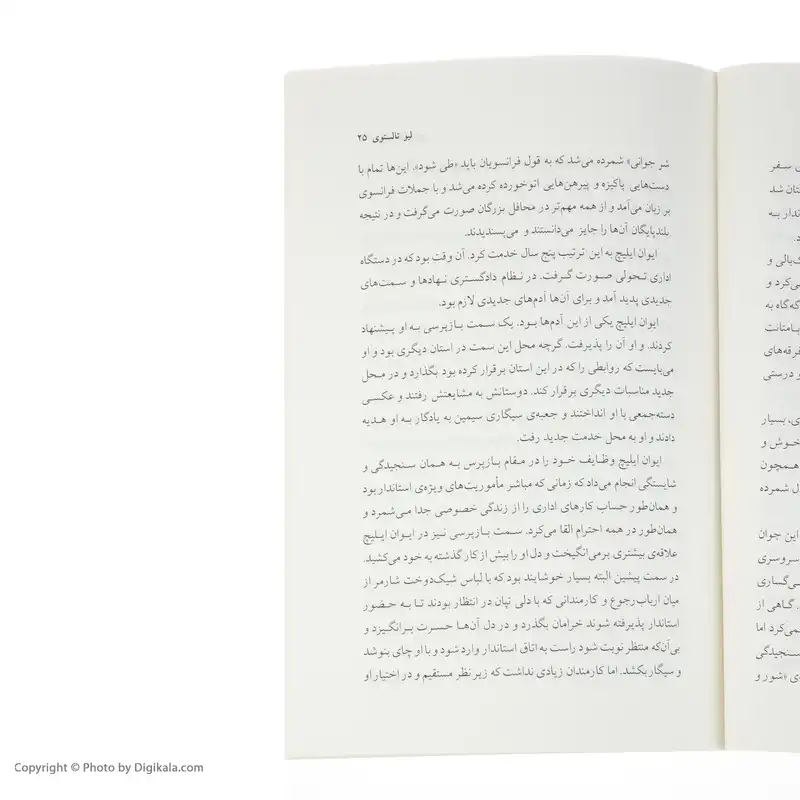 لیو تالستوی ۲۵
شر جوانی» شمرده می‌شد که به قول فرانسویان باید «طی شود». این‌ها تمام با
دست‌هایی پاکیزه و پیرهن‌هایی اتوخورده کرده می‌شد و با جملات فرانسوی
بر زبان می‌آمد و از همه مهم‌تر در محافل بزرگان صورت می‌گرفت و در نتیجه
بلندپایگان آن‌ها را جایز می‌دانستند و می‌پسندیدند.
ایوان ایلیچ به این ترتیب پنج سال خدمت کرد. آن وقت بود که در دستگاه
اداری تحولی صورت گرفت. در نظام دادگستری نهادها و سمت‌های
جدیدی پدید آمد و برای آن‌ها آدم‌های جدیدی لازم بود.
ایوان ایلیچ یکی از این آدم‌ها بود. یک سمت بازپرسی به او پیشنهاد
کردند. و او آن را پذیرفت. گرچه محل این سمت در استان دیگری بود و او
می‌بایست که روابطی را که در این استان برقرار کرده بود بگذارد و در محل
جدید مناسبات دیگری برقرار کند. دوستانش به مشایعتش رفتند و عکسی
دسته‌جمعی با او انداختند و جعبه‌ی سیگاری سیمین به یادگار به او هدیه
دادند و او به محل خدمت جدید رفت.
ایوان ایلیچ وظایف خود را در مقام بازپرس به همان سنجیدگی و
شایستگی انجام می‌داد که زمانی که مباشر مأموریت‌های ویژه‌ی استاندار بود
و همان‌طور حساب کارهای اداری را از زندگی خصوصی جدا می‌شمرد و
همان‌طور در همه احترام القا می‌کرد. سمت بازپرسی نیز در ایوان ایلیچ
علاقه‌ی بیشتری برمی‌انگیخت و دل او را بیش از کار گذشته به خود می‌کشید.
در سمت پیشین البته بسیار خوشایند بود که با لباس شیک‌دوخت شارمر از
میان ارباب‌رجوع و کارمندانی که با دلی تپان در انتظار بودند تا به حضور
استاندار پذیرفته شوند خرامان بگذرد و در دل آن‌ها حسرت برانگیزد و
بی‌آن‌که منتظر نوبت شود راست به اتاق استاندار وارد شود و با او چای بنوشد
و سیگار بکشد. اما کارمندان زیادی نداشت که زیر نظر مستقیم و در اختیار او
سفر
شد
به
و
می‌کرد و
گه‌گاه به
فرقه‌های
و درستی
بسیار
خوش و
همچون
شمرده
این جوان
گاهی از
اما
سنجیدگی
«شور و
Copyright © Photo by Digikala.com